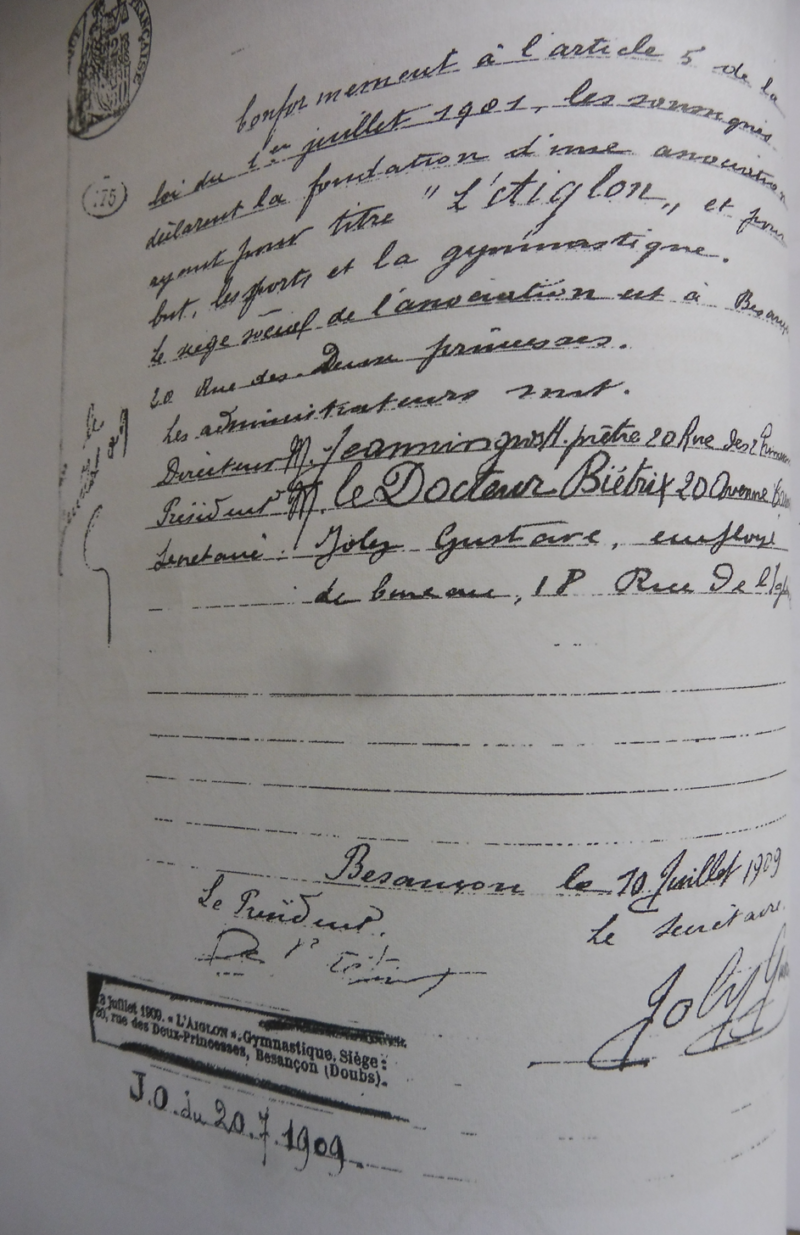 ÇAISE
Conformément à l'article 5 de la
loi du 1er juillet 1901, les soussignés
175
déclarent la fondation d'une association
ayant pour titre "L'Aiglon„ et pour
but, les sports et la gymnastique.
Le siège social de l'association est à Besanç
20 Rue des Deux princesses.
Les administrateurs sont.
Directeur M. Jeanningros H. prêtre 20 Rue des 2 Princesses
Président M. le Docteur Biétrix 20 Avenue
Secretaire : Joly Gustave, employé
de bureau, 18 Rue De l'
Besançon le 10 Juillet 1909
Le Président.
Le Secrétaire
Joly
juillet 1909. « L'AIGLON ». Gymnastique. Siège :
20, rue des Deux-Princesses, Besançon (Doubs).
J.O. du 20.7.1909